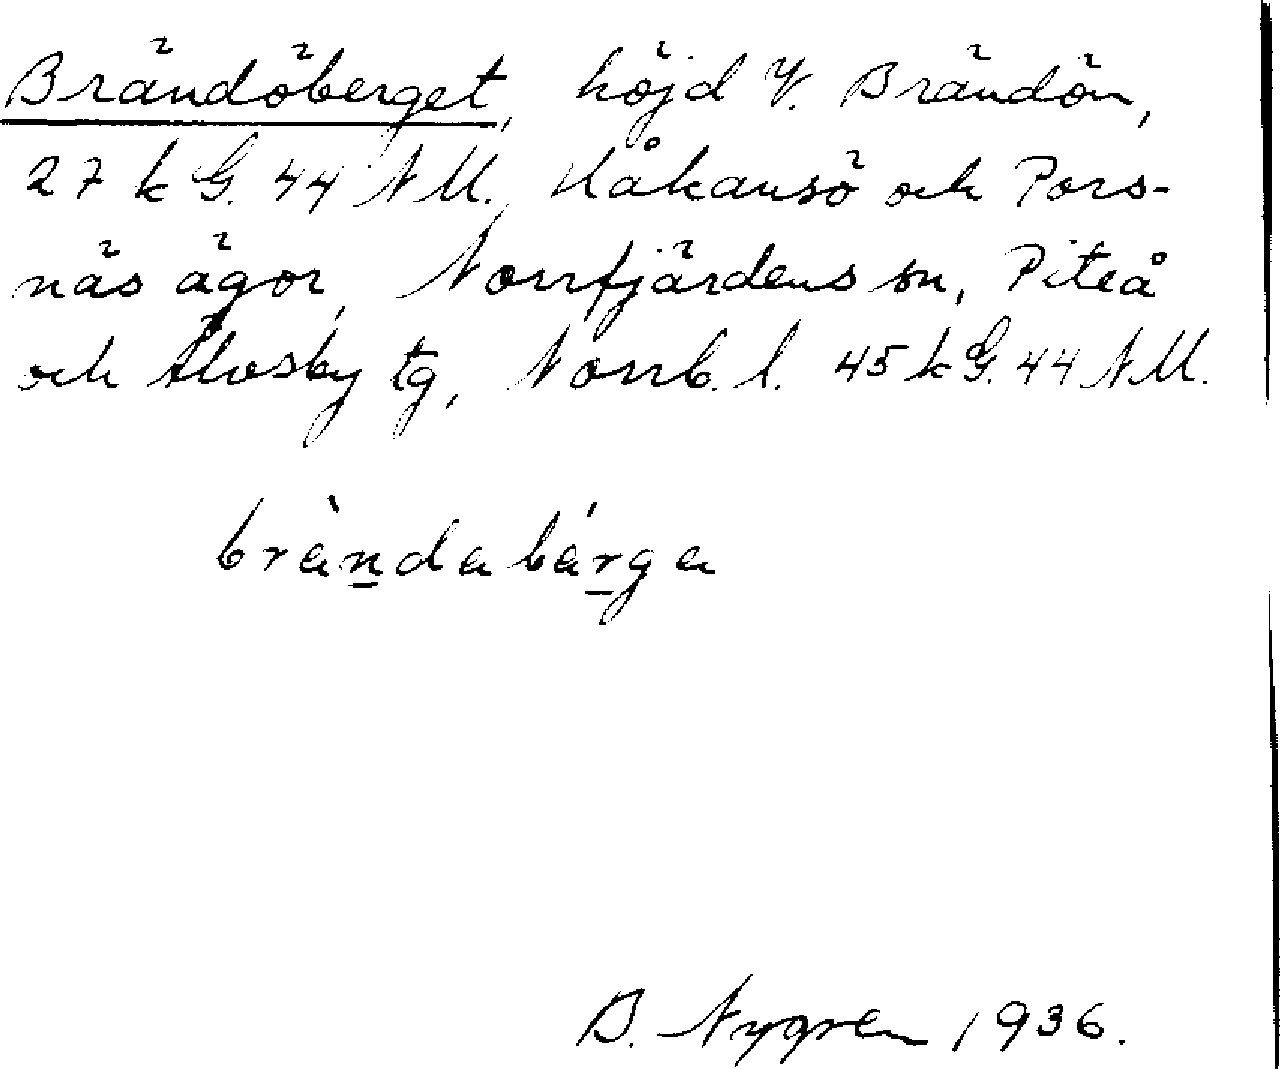 Brändöberget, höjd V. Brändön,
27 k G. 44 N M. Håkansö och Pors-
näs ägor, Norrfjärdens sn, Piteå
och Älvsby tg, Norrb. l. 45 k G. 44 N M.
brànda bárga
B. Nygren 1936.